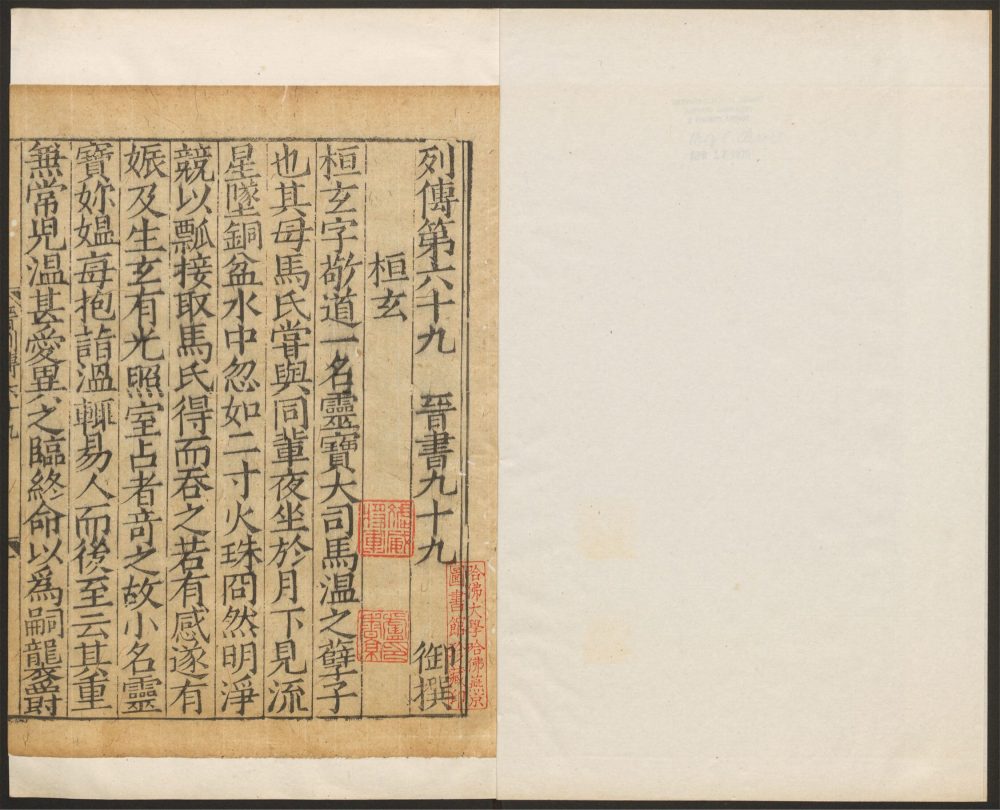 列傳第六十九 晉書九十九 御撰
桓玄
桓玄字敬道一名靈寶大司馬温之孽子
也其母馬氏甞與同輩夜坐於月下見流
星墜銅盆水中忽如二寸火珠冏然明淨
競以瓢接取馬氏得而吞之若有感遂有
娠及生玄有光照室占者竒之故小名靈
寶妳媪每抱詣温輒易人而後至云其重
無常兒温甚愛異之臨終命以爲嗣襲爵
哈佛大學哈佛燕京
圖書館珍藏印